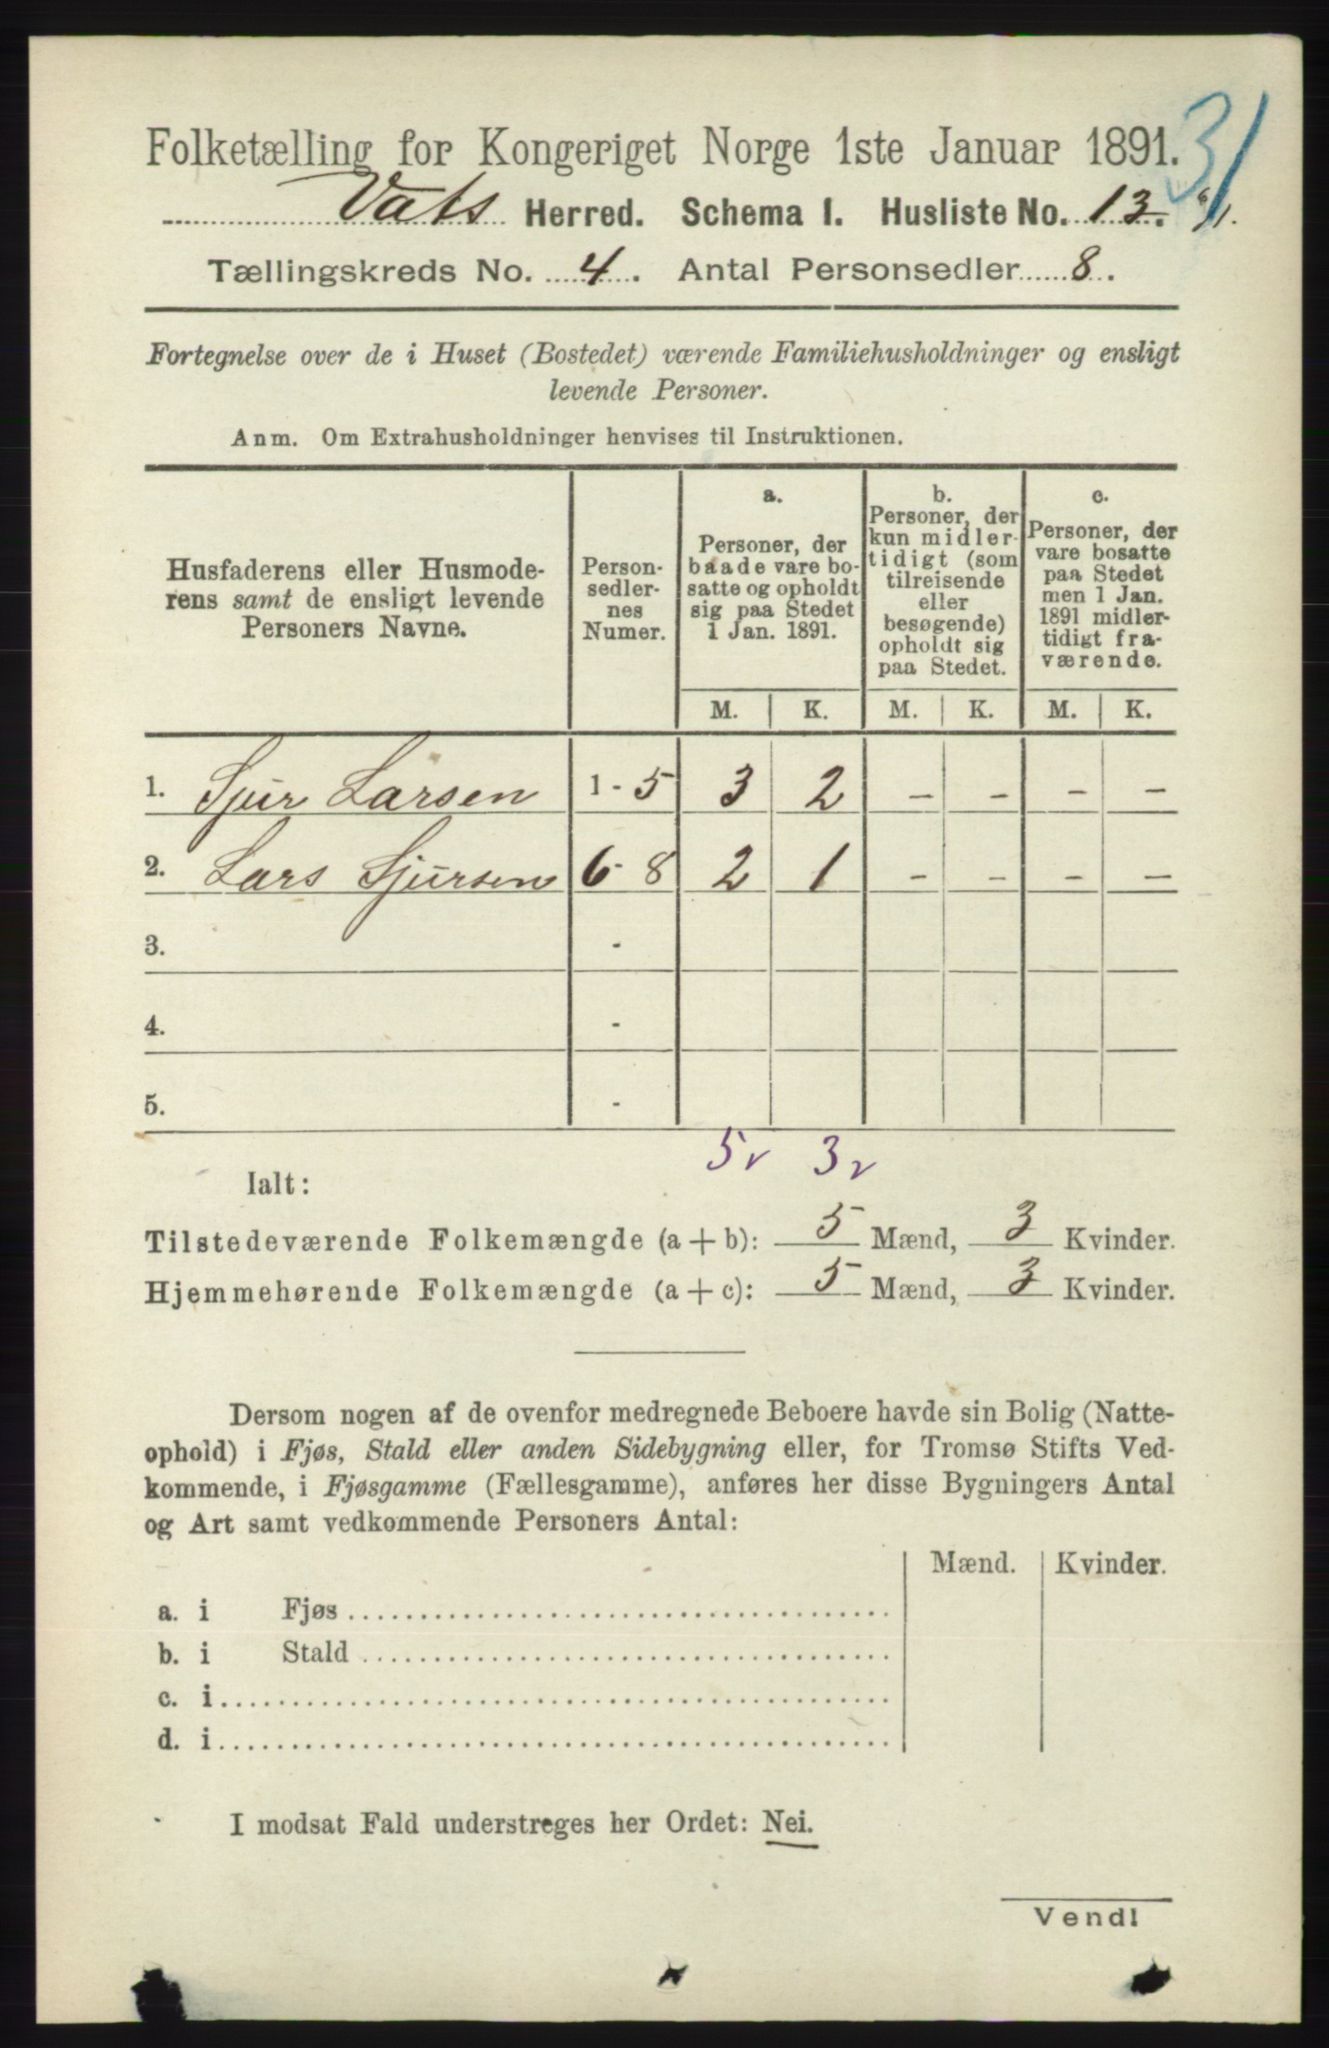 31
Folketælling for Kongeriget Norge 1ste Januar 1891.
Vats Herred. Schema I. Husliste No. 13.
Tællingskreds No. 4. Antal Personsedler 8.
Fortegnelse over de i Huset (Bostedet) værende Familiehusholdninger og ensligt
levende Personer.
Anm. Om Extrahusholdninger henvises til Instruktionen.
Husfaderens eller Husmode-
rens samt de ensligt levende
Personers Navne.
Person-
sedler-
nes
Numer.
a.
Personer, der
baade vare bo-
satte og opholdt
sig paa Stedet
1 Jan. 1891.
b.
Personer, der
kun midler-
tidigt (som
tilreisende
eller
besøgende)
opholdt sig
paa Stedet.
c.
Personer, der
vare bosatte
paa Stedet
men 1 Jan.
1891 midler-
tidigt fra-
værende.
M. K. M. K. M. K.
1. Sjur Larsen 1 - 5 3 2 - - - -
2. Lars Sjursen 6 - 8 2 1 - - - -
3. -
4. -
5. -
5 v 3 v
Ialt:
Tilstedeværende Folkemængde (a + b): 5 Mænd, 3 Kvinder.
Hjemmehørende Folkemængde (a + c): 5 Mænd, 3 Kvinder.
Dersom nogen af de ovenfor medregnede Beboere havde sin Bolig (Natte-
ophold) i Fjøs, Stald eller anden Sidebygning eller, for Tromsø Stifts Ved-
kommende, i Fjøsgamme (Fællesgamme), anføres her disse Bygningers Antal
og Art samt vedkommende Personers Antal:
Mænd. Kvinder.
a. i Fjøs
b. i Stald
c. i
d. i
I modsat Fald understreges her Ordet: Nei.
Vend!